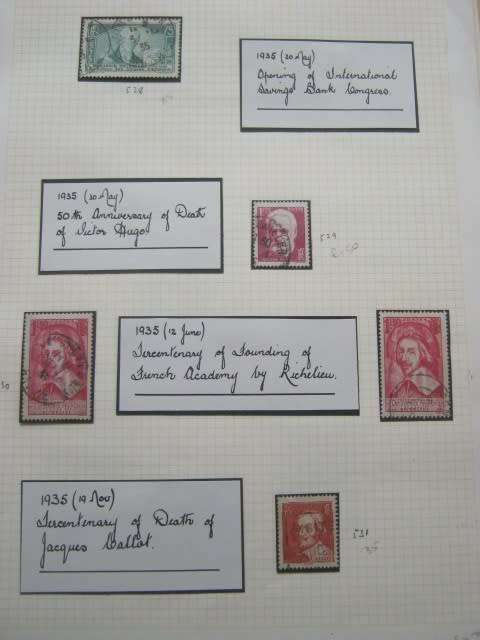 1935 (20 May)
Opening of International
Savings Bank Congress.
528
1935 (30 May)
50th Anniversary of Death
of Victor Hugo
529
1935 (12 June)
Tercentenary of Founding of
French Academy by Richelieu.
30
1935 (19 Nov)
Tercentenary of Death of
Jacques Callot.
531